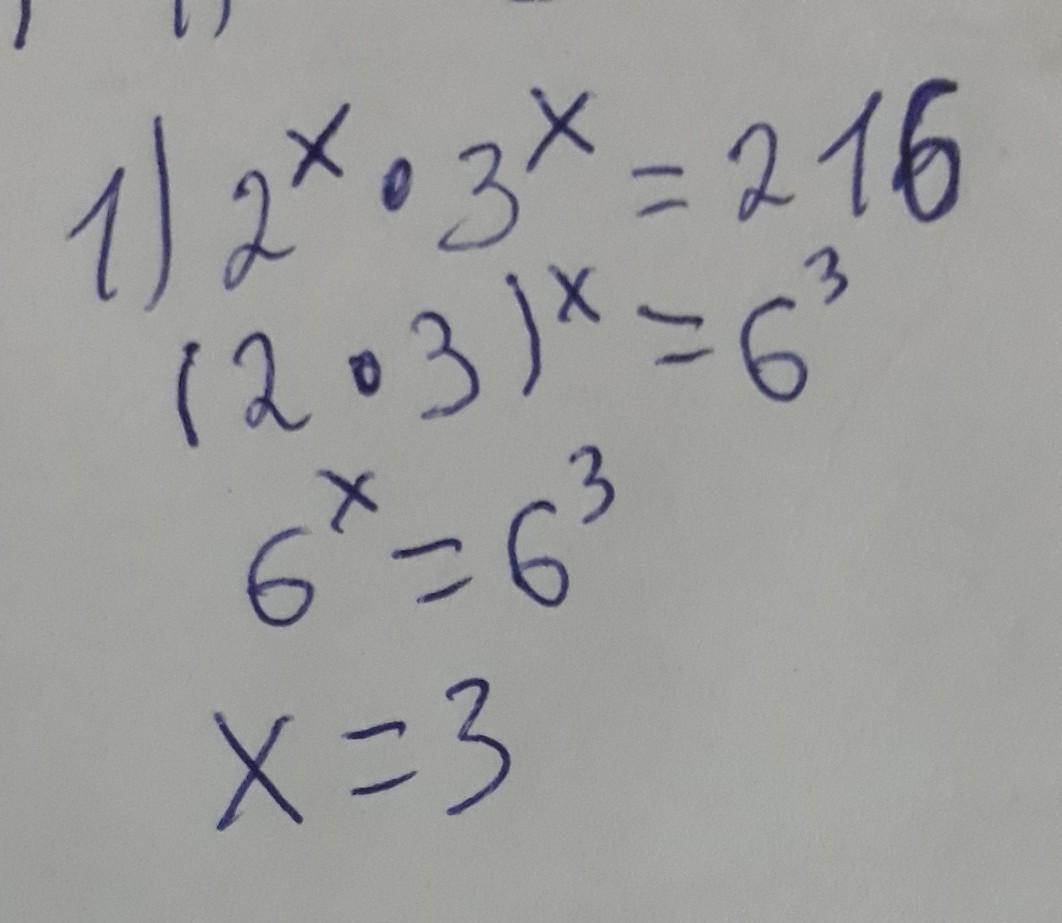 1) 2^x · 3^x = 216
(2 · 3)^x = 6^3
6^x = 6^3
x = 3